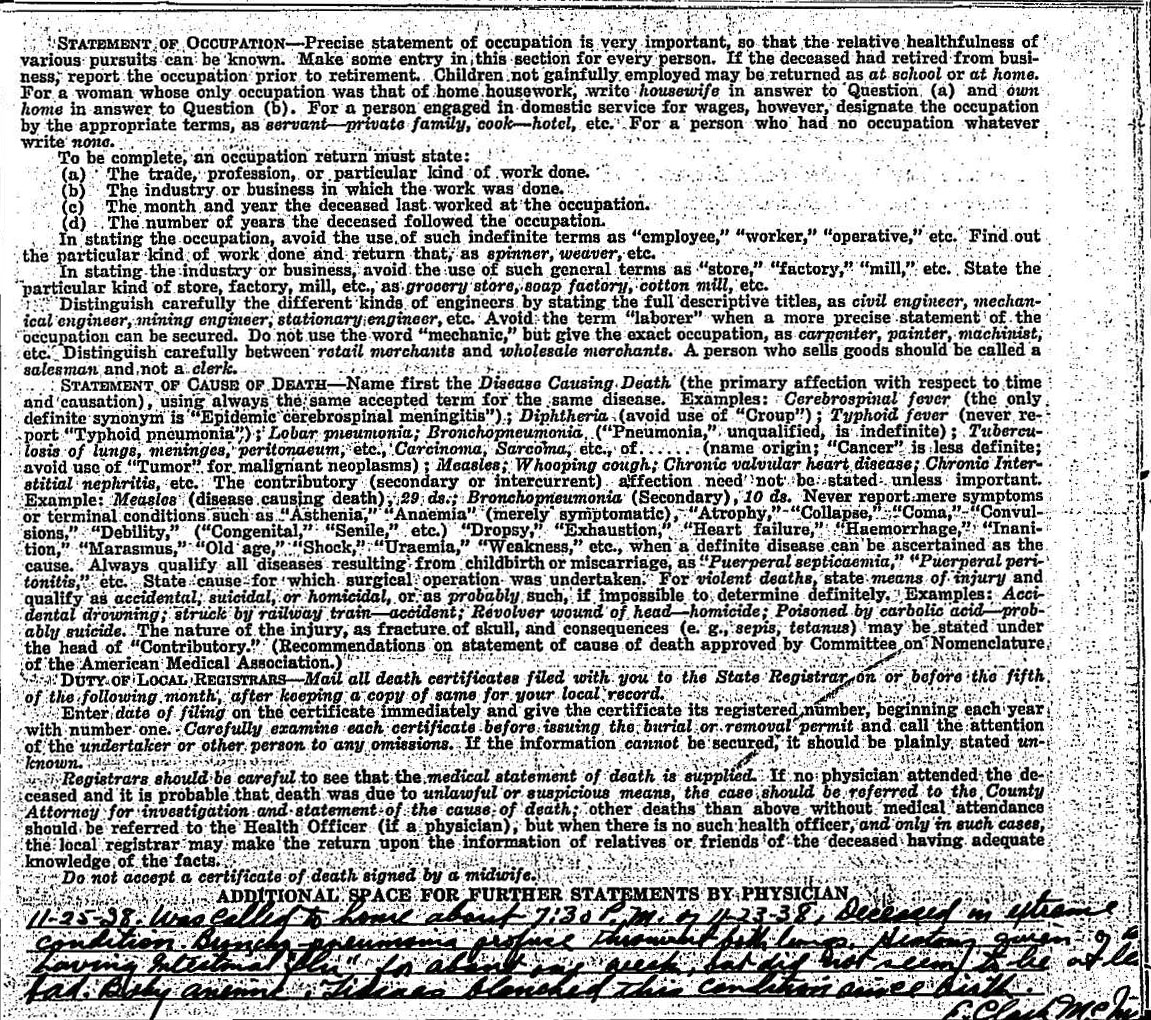 STATEMENT OF OCCUPATION—Precise statement of occupation is very important, so that the relative healthfulness of
various pursuits can be known. Make some entry in this section for every person. If the deceased had retired from busi-
ness, report the occupation prior to retirement. Children not gainfully employed may be returned as at school or at home.
For a woman whose only occupation was that of home housework, write housewife in answer to Question (a) and own
home in answer to Question (b). For a person engaged in domestic service for wages, however, designate the occupation
by the appropriate terms, as servant—private family, cook—hotel, etc. For a person who had no occupation whatever
write none.
To be complete, an occupation return must state:
(a) The trade, profession, or particular kind of work done.
(b) The industry or business in which the work was done.
(c) The month and year the deceased last worked at the occupation.
(d) The number of years the deceased followed the occupation.
In stating the occupation, avoid the use of such indefinite terms as "employee," "worker," "operative," etc. Find out
the particular kind of work done and return that, as spinner, weaver, etc.
In stating the industry or business, avoid the use of such general terms as "store," "factory," "mill," etc. State the
particular kind of store, factory, mill, etc., as grocery store, soap factory, cotton mill, etc.
Distinguish carefully the different kinds of engineers by stating the full descriptive titles, as civil engineer, mechan-
ical engineer, mining engineer, stationary engineer, etc. Avoid the term "laborer" when a more precise statement of the
occupation can be secured. Do not use the word "mechanic," but give the exact occupation, as carpenter, painter, machinist,
etc. Distinguish carefully between retail merchants and wholesale merchants. A person who sells goods should be called a
salesman and not a clerk.
STATEMENT OF CAUSE OF DEATH—Name first the Disease Causing Death (the primary affection with respect to time
and causation), using always the same accepted term for the same disease. Examples: Cerebrospinal fever (the only
definite synonym is "Epidemic cerebrospinal meningitis"); Diphtheria (avoid use of "Croup"); Typhoid fever (never re-
port "Typhoid pneumonia"); Lobar pneumonia; Bronchopneumonia ("Pneumonia," unqualified, is indefinite); Tubercu-
losis of lungs, meninges, peritonaeum, etc., Carcinoma, Sarcoma, etc., of...... (name origin; "Cancer" is less definite;
avoid use of "Tumor" for malignant neoplasms); Measles; Whooping cough; Chronic valvular heart disease; Chronic Inter-
stitial nephritis, etc. The contributory (secondary or intercurrent) affection need not be stated unless important.
Example: Measles (disease causing death), 29 ds.; Bronchopneumonia (Secondary), 10 ds. Never report mere symptoms
or terminal conditions such as "Asthenia," "Anaemia" (merely symptomatic), "Atrophy," "Collapse," "Coma," "Convul-
sions," "Debility," ("Congenital," "Senile," etc.) "Dropsy," "Exhaustion," "Heart failure," "Haemorrhage," "Inani-
tion," "Marasmus," "Old age," "Shock," "Uraemia," "Weakness," etc., when a definite disease can be ascertained as the
cause. Always qualify all diseases resulting from childbirth or miscarriage, as "Puerperal septicaemia," "Puerperal peri-
tonitis," etc. State cause for which surgical operation was undertaken. For violent deaths, state means of injury and
qualify as accidental, suicidal, or homicidal, or as probably such, if impossible to determine definitely. Examples: Acci-
dental drowning; struck by railway train—accident; Revolver wound of head—homicide; Poisoned by carbolic acid—prob-
ably suicide. The nature of the injury, as fracture of skull, and consequences (e. g., sepis, tetanus) may be stated under
the head of "Contributory." (Recommendations on statement of cause of death approved by Committee on Nomenclature
of the American Medical Association.)
DUTY OF LOCAL REGISTRARS—Mail all death certificates filed with you to the State Registrar on or before the fifth
of the following month, after keeping a copy of same for your local record.
Enter date of filing on the certificate immediately and give the certificate its registered number, beginning each year
with number one. Carefully examine each certificate before issuing the burial or removal permit and call the attention
of the undertaker or other person to any omissions. If the information cannot be secured, it should be plainly stated un-
known.
Registrars should be careful to see that the medical statement of death is supplied. If no physician attended the de-
ceased and it is probable that death was due to unlawful or suspicious means, the case should be referred to the County
Attorney for investigation and statement of the cause of death; other deaths than above without medical attendance
should be referred to the Health Officer (if a physician), but when there is no such health officer, and only in such cases,
the local registrar may make the return upon the information of relatives or friends of the deceased having adequate
knowledge of the facts.
Do not accept a certificate of death signed by a midwife.
ADDITIONAL SPACE FOR FURTHER STATEMENTS BY PHYSICIAN
11-25-38. Was called to home about 7:30 P.M. of 11-23-38. Deceased in extreme
condition. pneumonia profuse throughout both lungs. History given of
having Intestinal "flu" for about one week, but did not seem to be
bad. Tissues blanched this condition since birth.
Clark